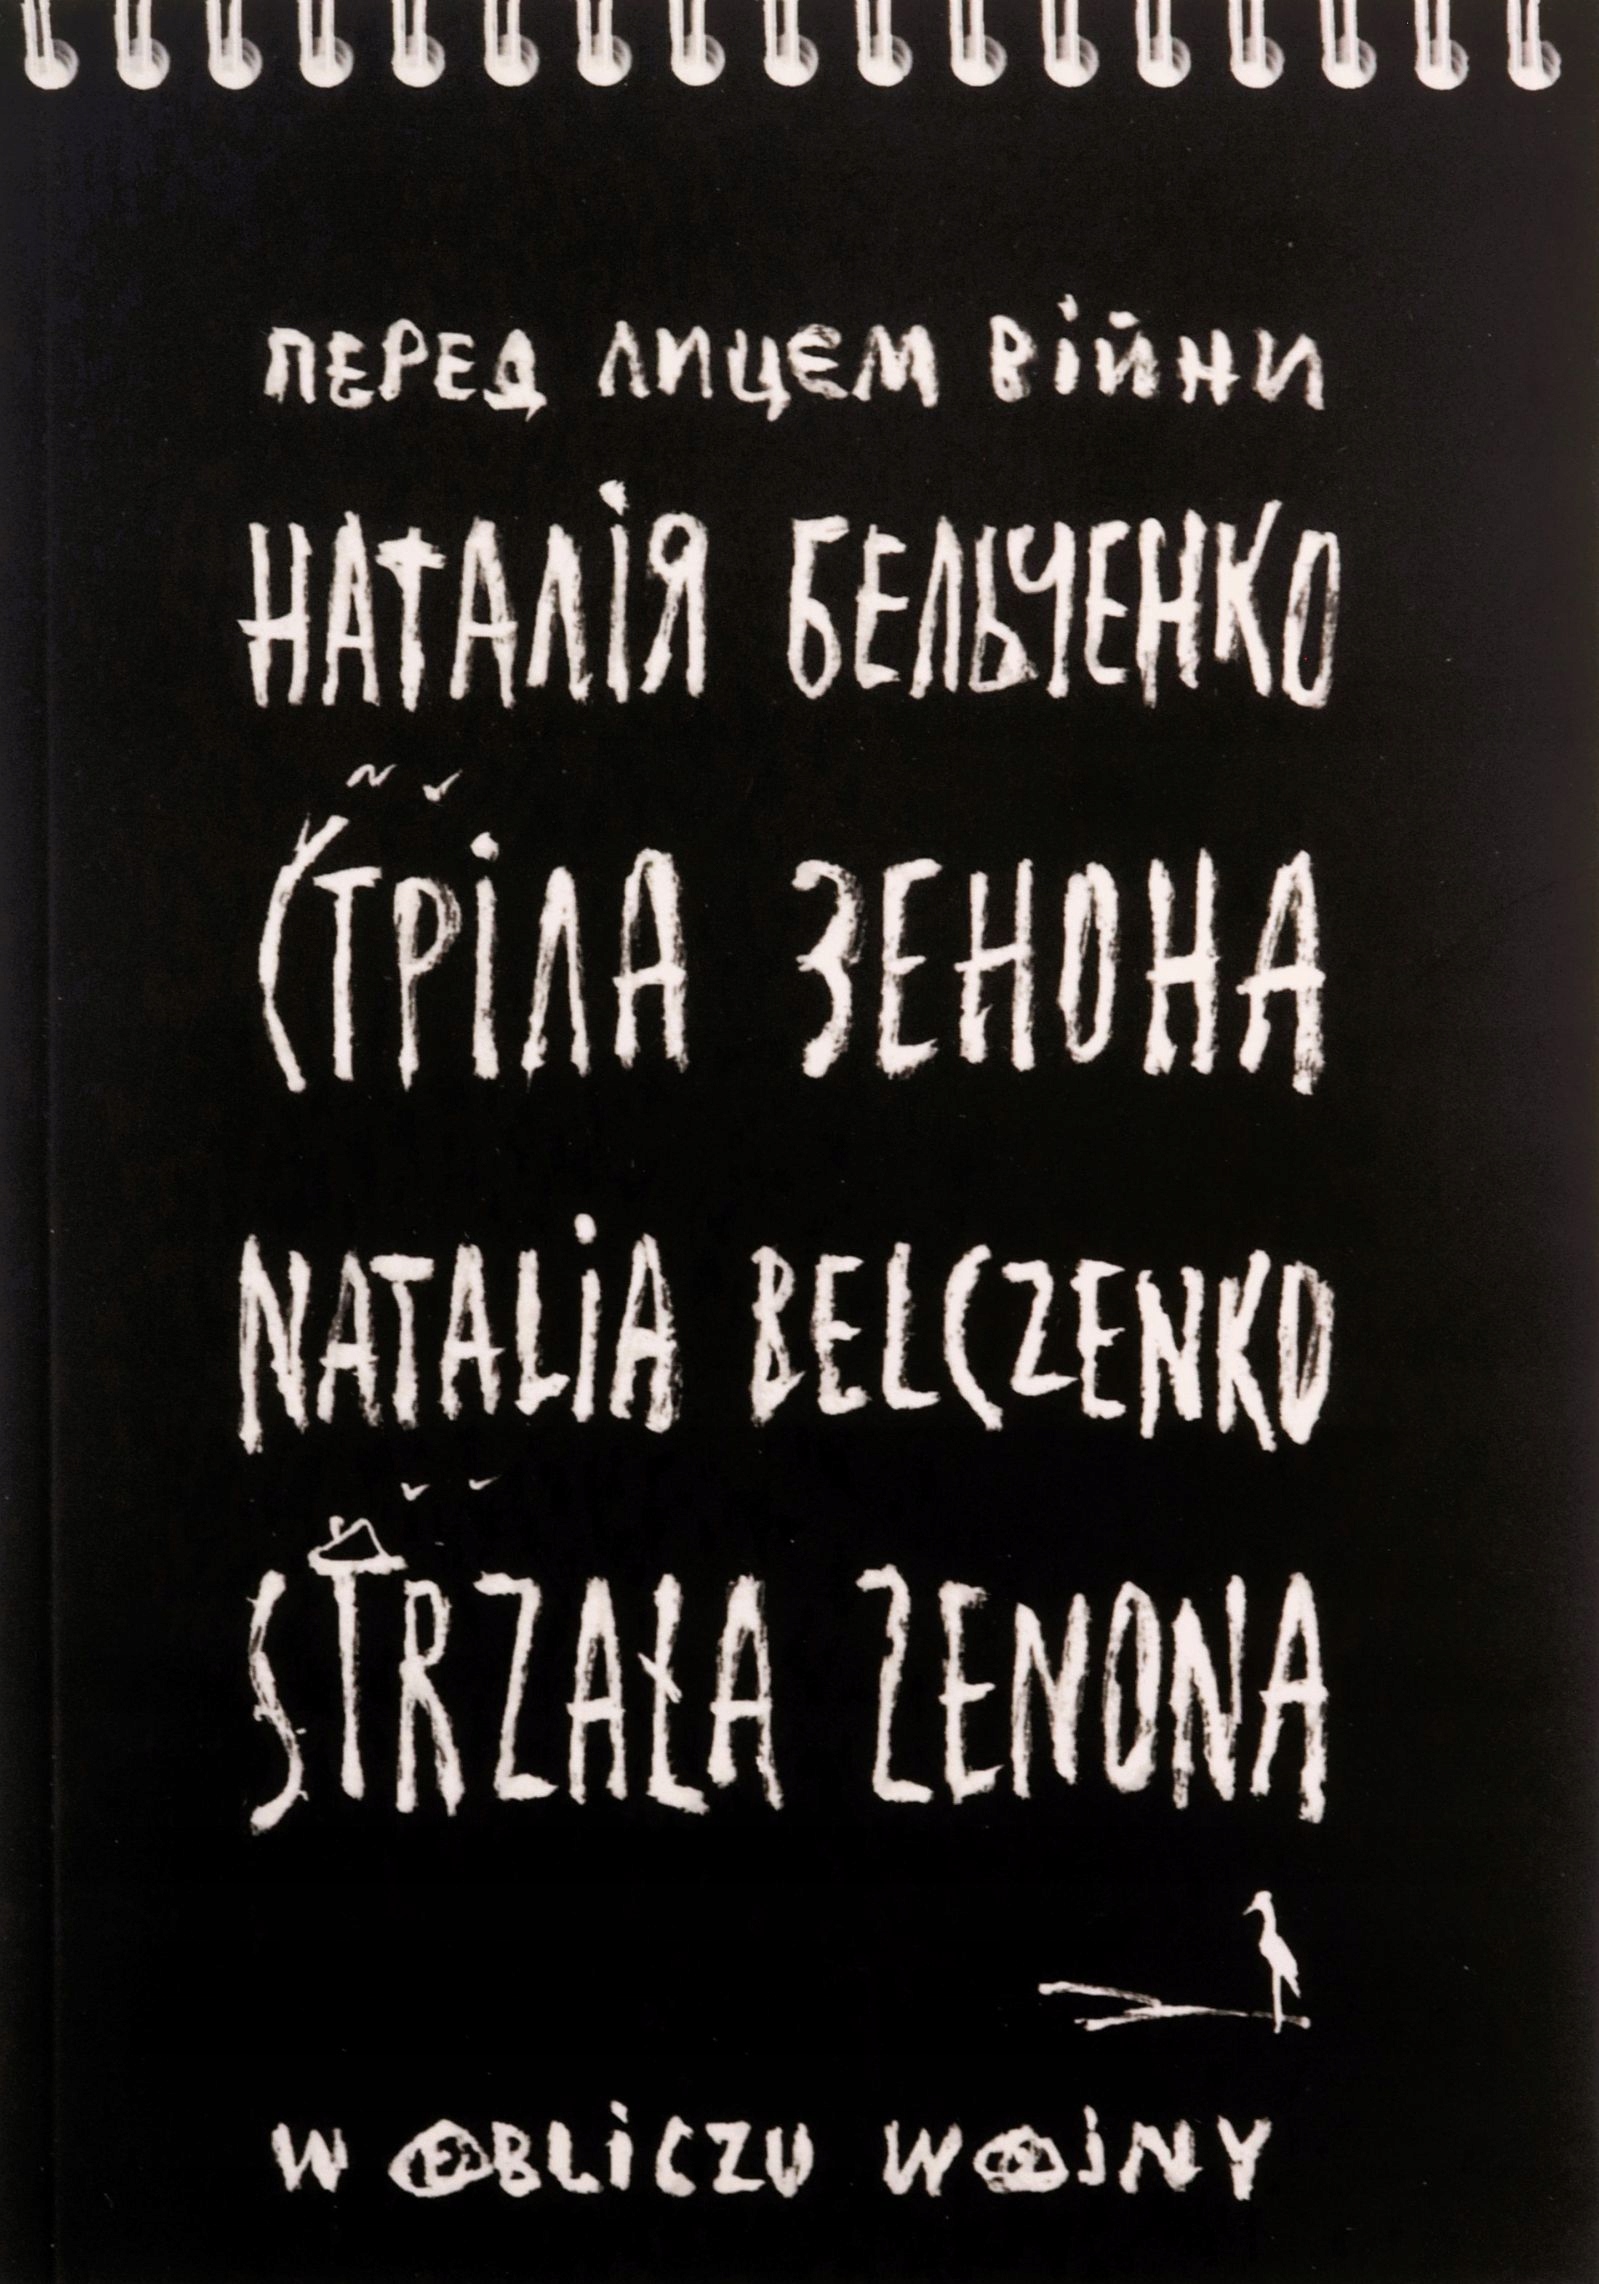 ПЕРЕД ЛИЦЕМ ВІЙНИ
НАТАЛІЯ БЕЛЬЧЕНКО
СТРІЛА ЗЕНОНА
NATALIA BELCZENKO
STRZAŁA ZENONA
W OBLICZU WOJNY